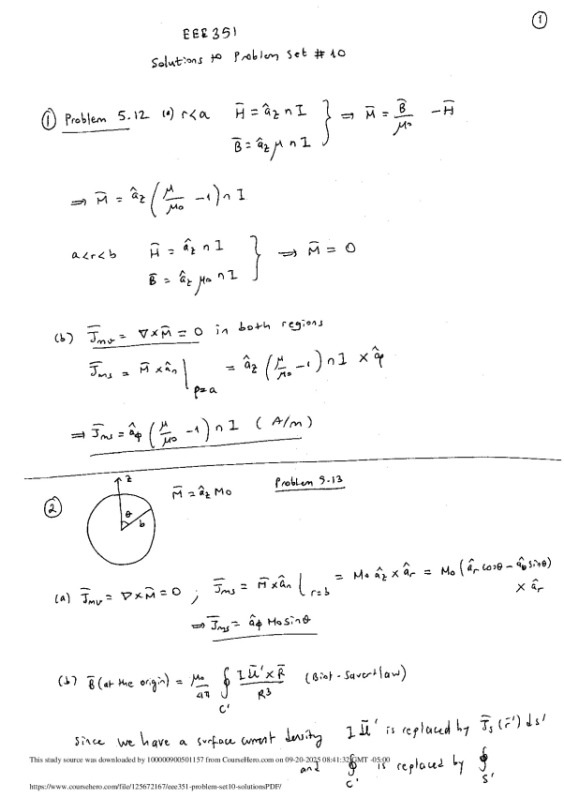 ①
EEE 351
Solutions to Problem Set # 10
① Problem 5.12 (a) r<a H̄ = â_z n I } ⇒ M̄ = B̄/μ₀ − H̄
B̄ = â_z μ n I
⇒ M̄ = â_z (μ/μ₀ − 1) n I
a<r<b H̄ = â_z n I } ⇒ M̄ = 0
B̄ = â_z μ₀ n I
(b) J̄_mv = ∇ × M̄ = 0 in both regions
J̄_ms = M̄ × â_n |_ρ=a = â_z (μ/μ₀ − 1) n I × â_ρ
⇒ J̄_ms = â_ϕ (μ/μ₀ − 1) n I (A/m)
② z θ b M̄ = â_z M₀ Problem 5.13
(a) J̄_mv = ∇ × M̄ = 0 ; J̄_ms = M̄ × â_n |_r=b = M₀ â_z × â_r = M₀ (â_r cosθ − â_θ sinθ)
× â_r
⇒ J̄_ms = â_ϕ M₀ sinθ
(b) B̄ (at the origin) = μ₀/4π ∮_C' I dl̄' × R̄ / R³ (Biot-Savart law)
Since we have a surface current density I dl̄' is replaced by J̄_s(r̄') ds'
and ∮_C' is replaced by ∮_S'
This study source was downloaded by 100000900501157 from CourseHero.com on 09-20-2025 08:41:32 GMT -05:00
https://www.coursehero.com/file/125672167/eee351-problem-set10-solutionsPDF/